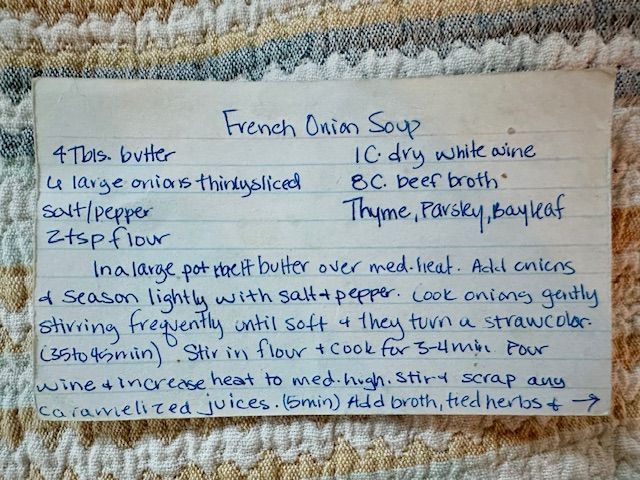 French Onion Soup
4 Tbls. butter
1 C. dry white wine
4 large onions thinly sliced
8 C. beef broth
salt/pepper
Thyme, Parsley, Bayleaf
2 tsp flour
In a large pot melt butter over med. heat. Add onions
& season lightly with salt & pepper. Cook onions gently
stirring frequently until soft & they turn a straw color.
(35 to 45 min) Stir in flour & cook for 3-4 min Pour
wine & increase heat to med. high. Stir & scrap any
caramelized juices. (5 min) Add broth, tied herbs & →